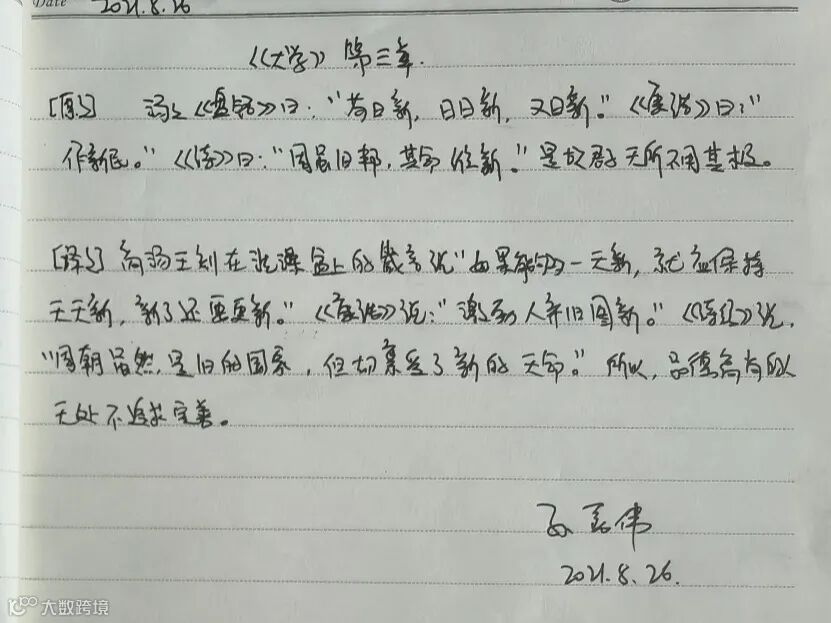 Date 2021.8.26
《大学》第三章.
[原文] 汤之《盘铭》曰:"苟日新,日日新,又日新."《康诰》曰:"
作新民。"《诗》曰:"周虽旧邦,其命维新."是故君子无所不用其极。
[译文] 商汤王刻在洗澡盆上的箴言说"如果能够一天新,就应保持
天天新,新了还要更新."《康诰》说:"激励人弃旧图新。"《诗经》说,
"周朝虽然是旧的国家,但却禀受了新的天命."所以,品德高尚的人
无处不追求完善。
2021.8.26.
大数跨境